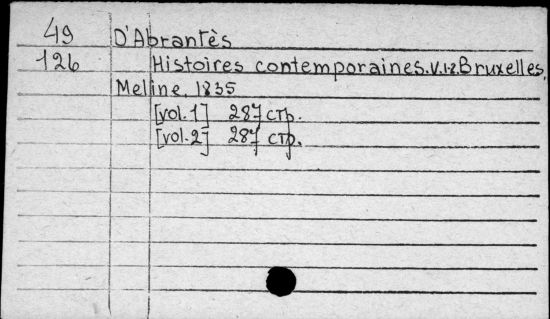 49 D'Abrantès
126 Histoires contemporaines. V.1-2. Bruxelles,
Meline, 1835
[vol. 1] 287 стр.
[vol. 2] 287 стр.